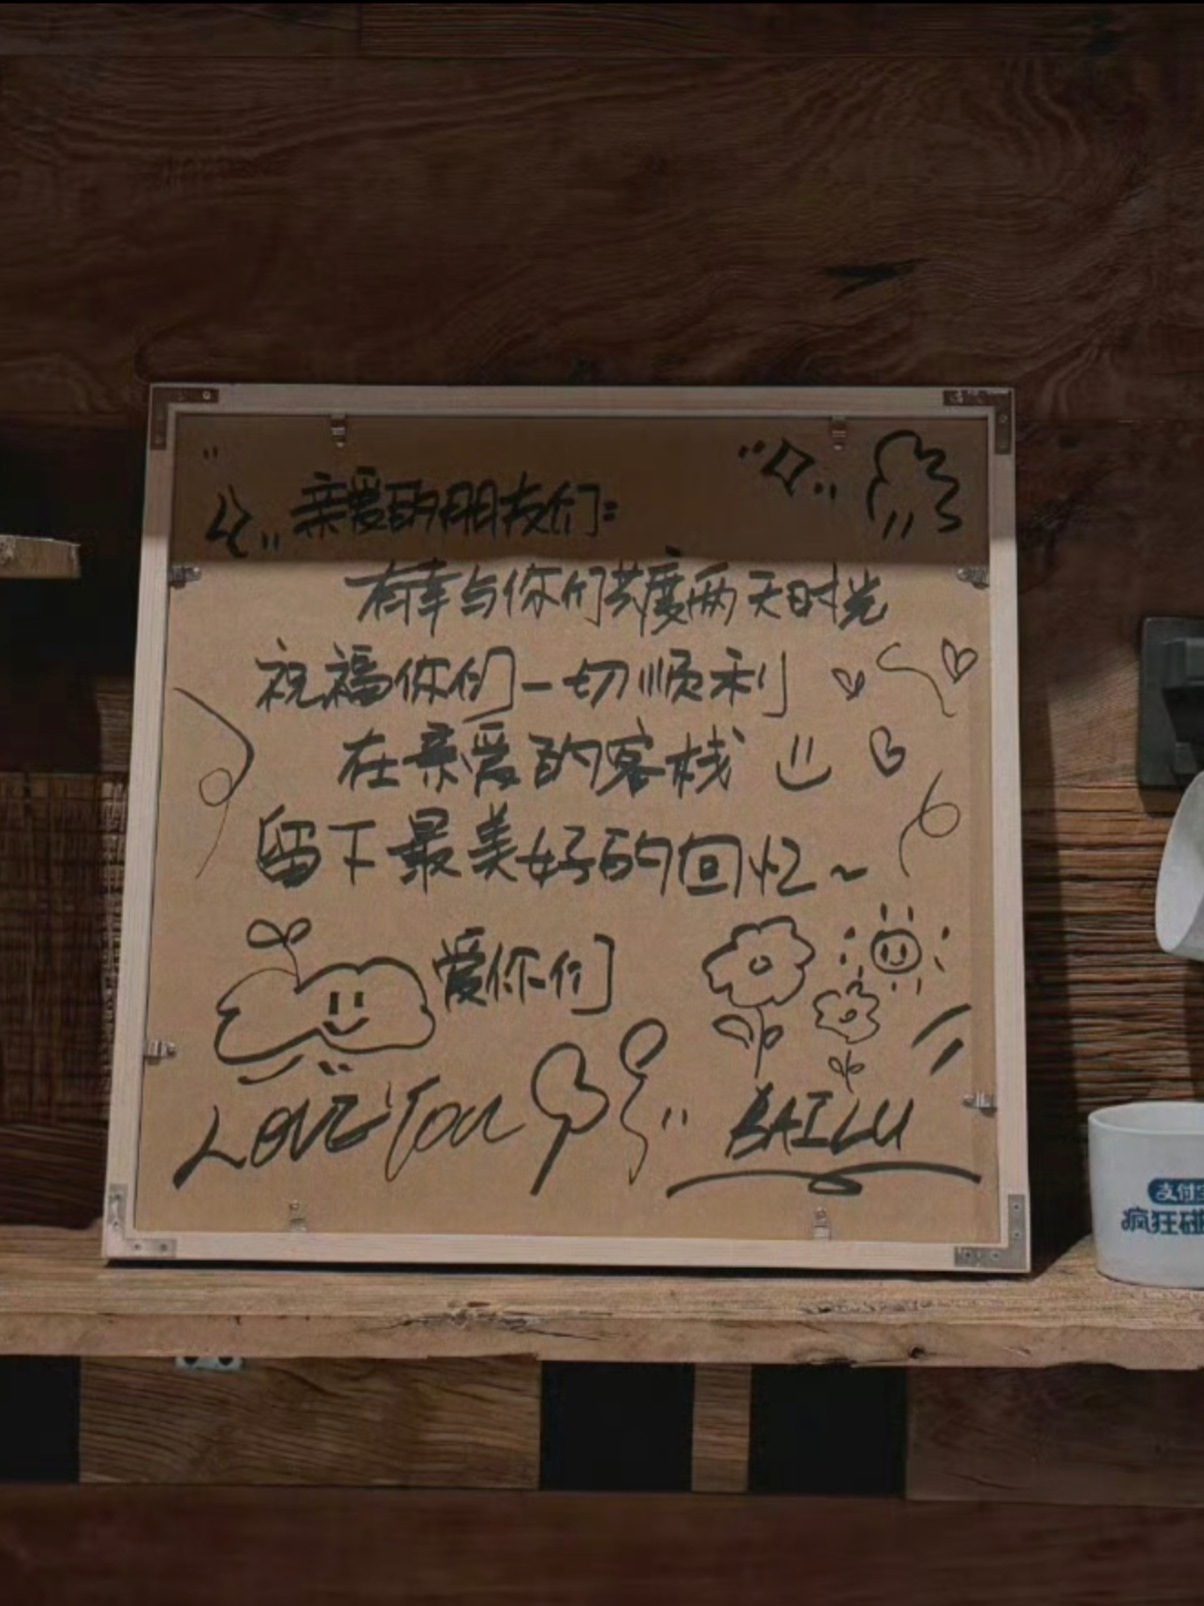 亲爱的朋友们：
有幸与你们共度两天时光
祝福你们一切顺利
在亲爱的客栈
留下最美好的回忆～
爱你们
LOVE You
BAILU
支付
疯狂碰